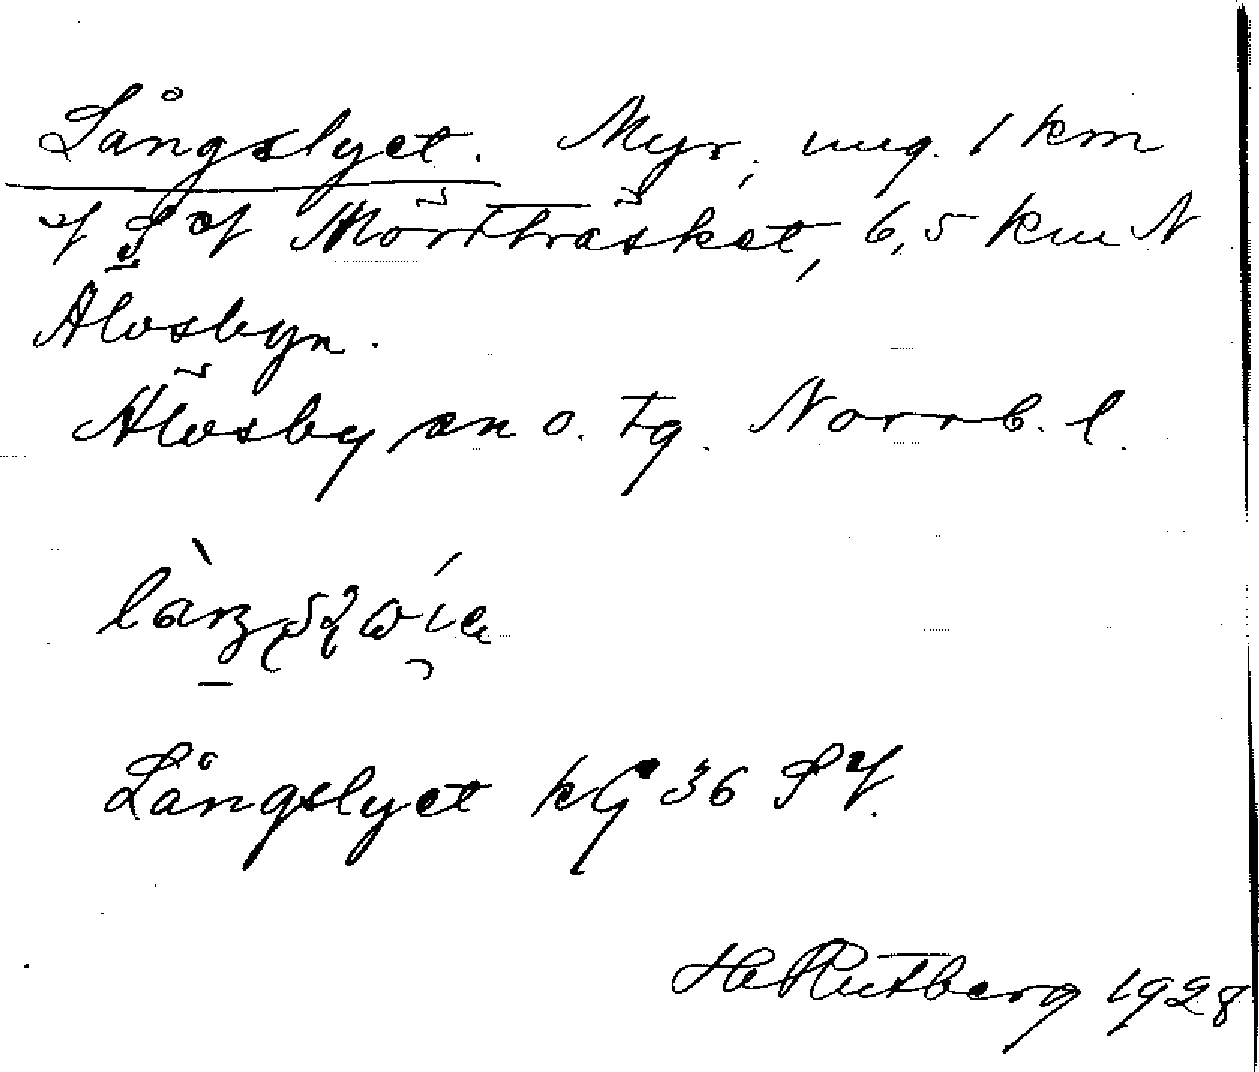 Långslyet. Myr, ung. 1 km
S of Mörtträsket, 6,5 km N
Älvsbyn.
Älvsby sn o. tg. Norrb. l.
Långslyet kG 36 SV.
H Rutberg 1928